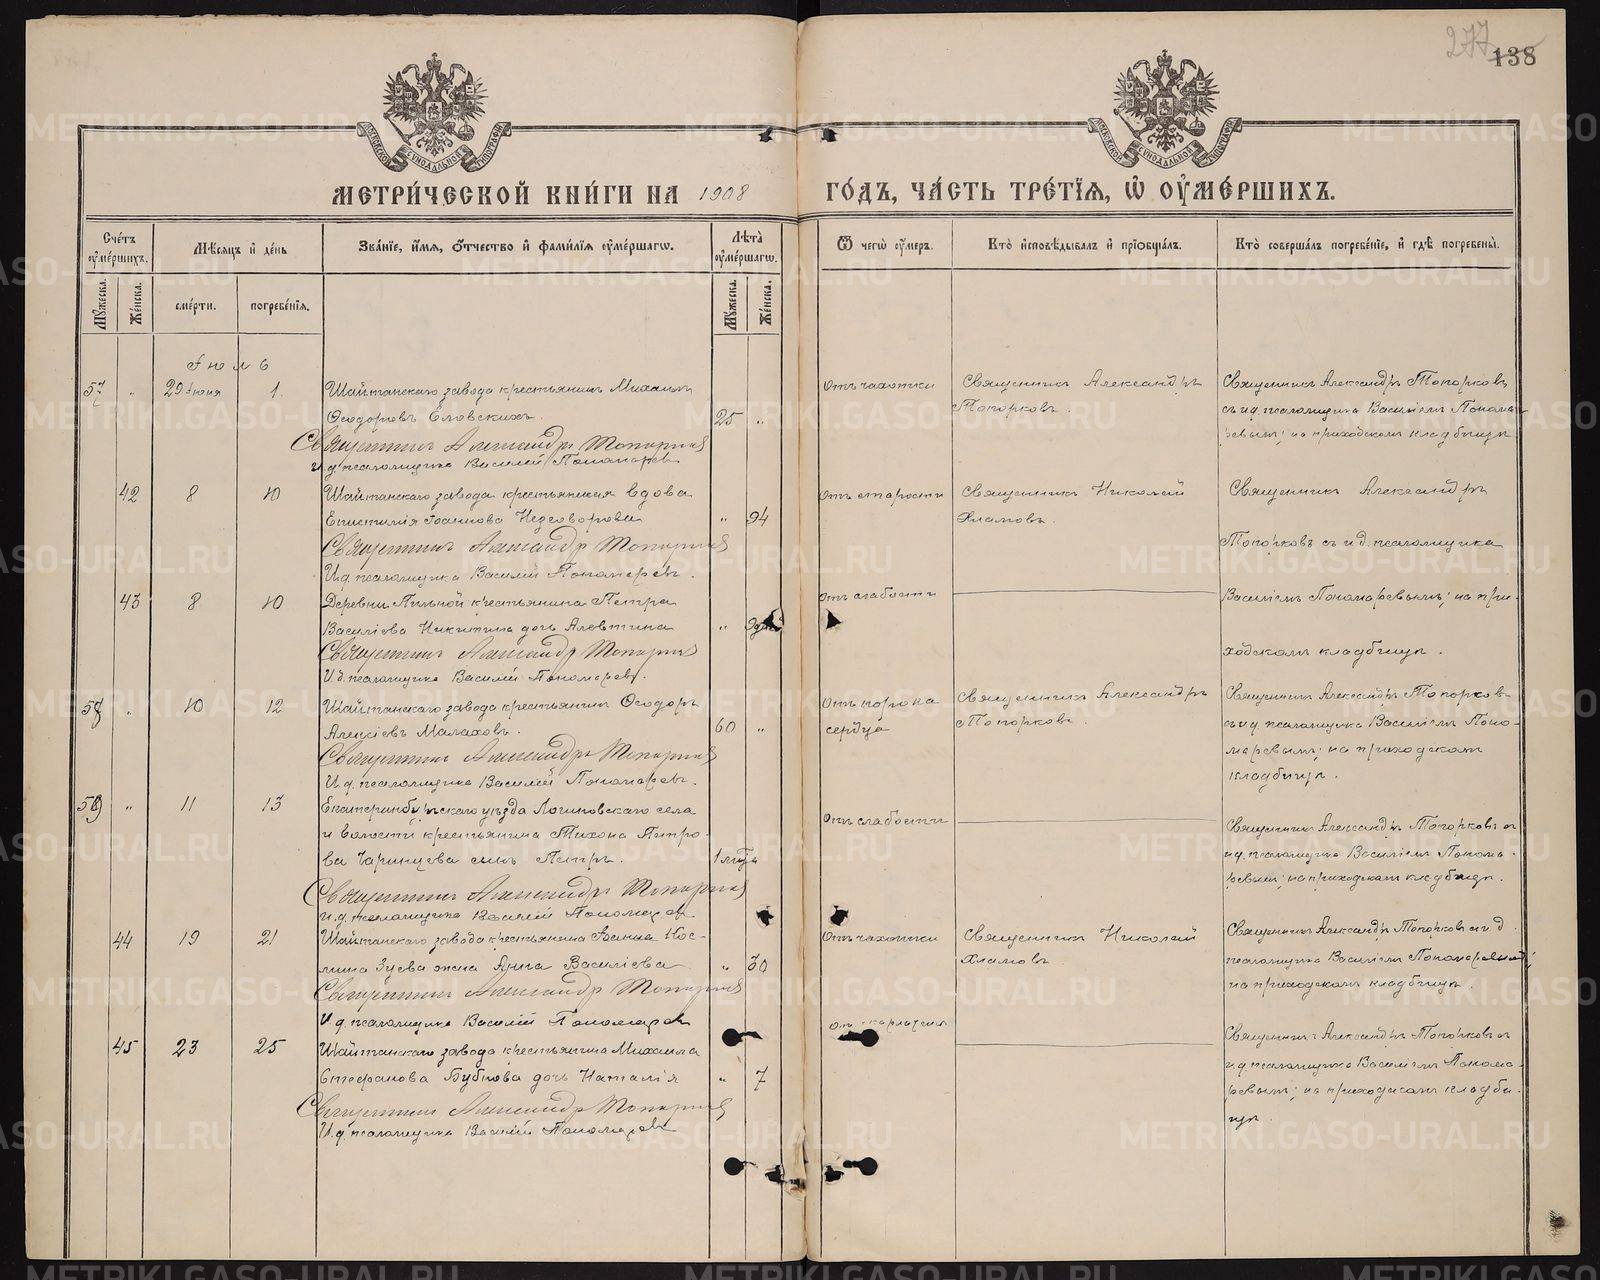 277
138
МОСКОВСКОЙ СѴНОДАЛЬНОЙ ТИПОГРАФІИ
МОСКОВСКОЙ СѴНОДАЛЬНОЙ ТИПОГРАФІИ
МЕТРИ́ЧЕСКОЙ КНИ́ГИ НА 1908
ГО́ДЪ, ЧА́СТЬ ТРЕ́ТІѦ, Ѡ҆ ОУ҆МЕ́РШИХЪ.
Сче́тъ оу҆ме́ршихъ.
Мѣ́сяцъ и҆ де́нь
Зва́ніе, и҆́мѧ, ѻ҆́тчество и҆ фами́лїѧ оу҆ме́ршагѡ.
Лѣ́та оу҆ме́ршагѡ.
Ѿ чегѡ̀ оу҆́меръ.
Кто̀ и҆сповѣ́дывалъ и҆ прїѡбща́лъ.
Кто̀ соверша́лъ погребе́нїе, и҆ гдѣ̀ погребены̀.
Мꙋ́жеска.
Же́нска.
сме́рти.
погребе́нїѧ.
Мꙋ́жеска.
Же́нска.
Іюль
57 " 29 Іюня 1. Шайтанскаго завода крестьянинъ Михаилъ
Ѳеодоровъ Еловскихъ. 25 "
Священникъ Александръ Топорковъ
И.д. псаломщика Василій Пономаревъ
Отъ чахотки
Священникъ Александръ
Топорковъ.
Священникъ Александръ Топорковъ
съ и.д. псаломщика Василіемъ Понома-
ревымъ; на приходскомъ кладбищѣ
42 8 10 Шайтанскаго завода крестьянская вдова
Епистилія Іоаннова " 94
Священникъ Александръ Топорковъ
И.д. псаломщика Василій Пономаревъ.
Отъ старости
Священникъ Николай
Хламовъ.
Священникъ Александръ
Топорковъ съ и.д. псаломщика
43 8 10 Деревни Пильной крестьянина Петра
Василіева Никитина дочь Алевтина "
Священникъ Александръ Топорковъ
И.д. псаломщика Василій Пономаревъ.
Отъ слабости
Василіемъ Пономаревымъ; на при-
ходскомъ кладбищѣ.
58 " 10 12 Шайтанскаго завода крестьянинъ Ѳеодоръ
Алексіевъ Малаховъ. 60 "
Священникъ Александръ Топорковъ
И.д. псаломщика Василій Пономаревъ.
Отъ порока
сердца
Священникъ Александръ
Топорковъ.
Священникъ Александръ Топорковъ
съ и.д. псаломщика Василіемъ Поно-
маревымъ; на приходскомъ
кладбищѣ.
59 " 11 13 Екатеринбургскаго уѣзда Логиновскаго села
и волости крестьянина Тихона Петро-
ва сынъ Петръ.
Священникъ Александръ Топорковъ
И.д. псаломщика Василій Пономаревъ
Отъ слабости
Священникъ Александръ Топорковъ съ
и.д. псаломщика Василіемъ Понома-
ревымъ; на приходскомъ кладбищѣ.
44 19 21 Шайтанскаго завода крестьянина Іоанна Кос-
мина Зуева жена Анна Василіева " 30
Священникъ Александръ Топорковъ
И.д. псаломщика Василій Пономаревъ
Отъ чахотки
Священникъ Николай
Хламовъ
Священникъ Александръ Топорковъ съ и.д.
псаломщика Василіемъ Пономаревымъ;
на приходскомъ кладбищѣ.
45 23 25 Шайтанскаго завода крестьянина Михаила
Стефанова Бубнова дочь Наталія " 7
Священникъ Александръ Топорковъ
И.д. псаломщика Василій Пономаревъ
Отъ скарлатины
Священникъ Александръ Топорковъ съ
и.д. псаломщика Василіемъ Понома-
ревымъ; на приходскомъ кладби-
щѣ.
METRIKI.GASO-URAL.RU